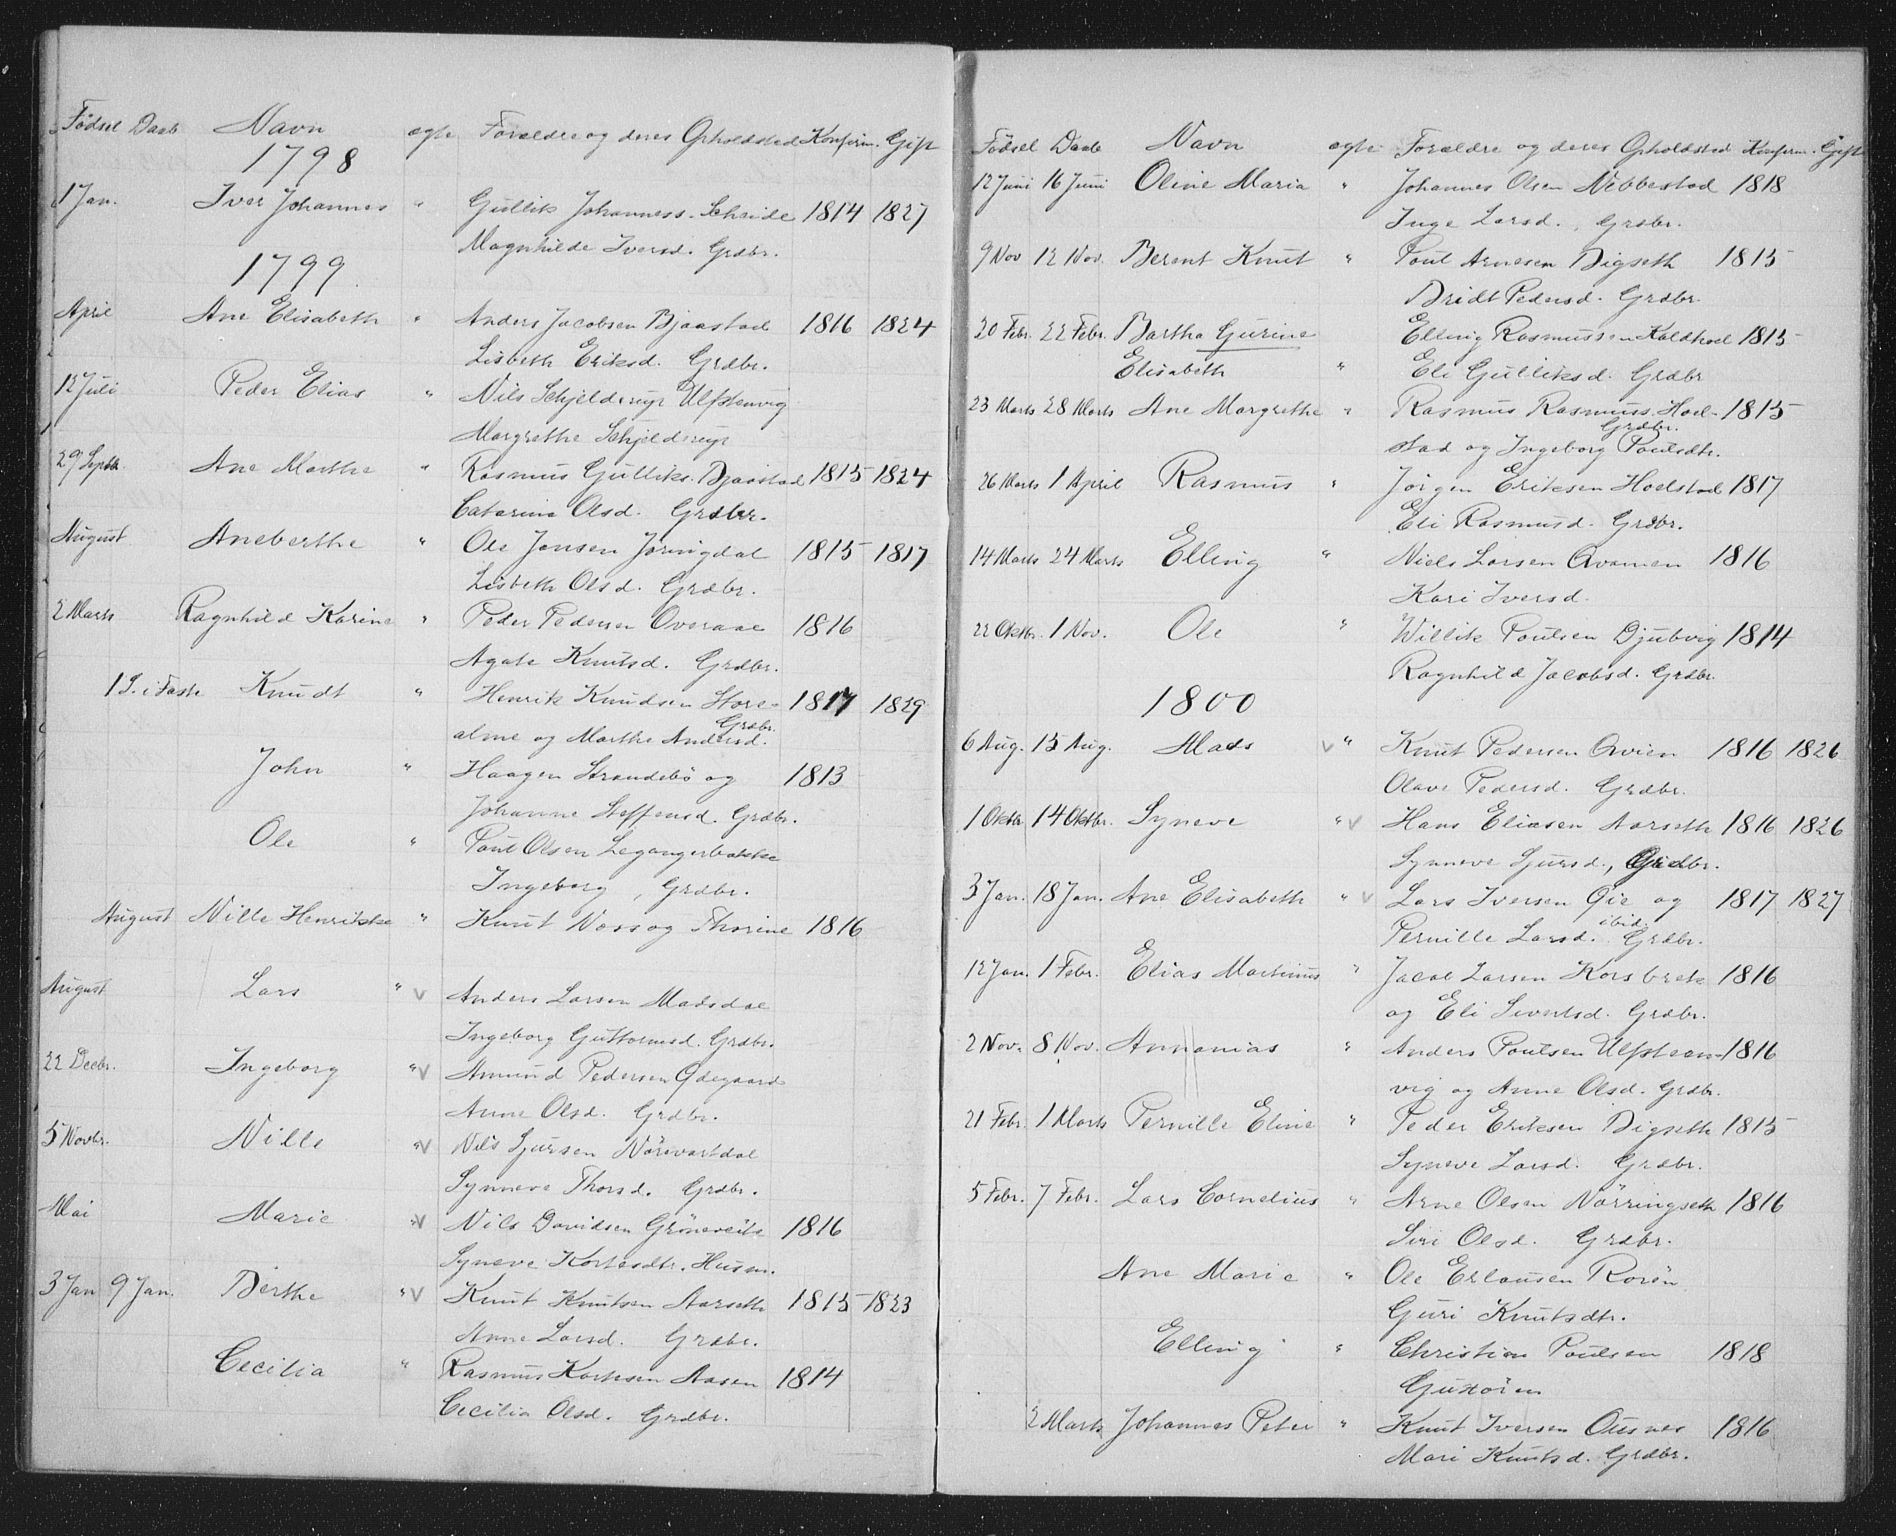 Fødsel Daab Navn ægte Forældre og deres Opholdsted Konfirm. Gift
1798
1 Jan. Iver Johannes " Gullik Johanness. Scheide 1814 1827
Magnhilde Iversd. Grdbr.
1799
April Ane Elisabeth " Anders Jacobsen Bjaastad 1816 1824
Lisbeth Eriksd. Grdbr.
12 Juli Peder Elias " Nils Schjelderup Ulfstenvig
Margrethe Schjelderup
29 Septbr. Ane Marthe " Rasmus Gulliks. Bjaastad 1815 1824
Catarina Olsd. Grdbr.
August Aneberthe " Ole Jonsen Jøringdal 1815 1817
Lisbeth Olsd. Grdbr.
2 Marts Ragnhild Karine " Peder Pedersen Overaae 1816
Agate Knutsd. Grdbr.
1 S. i Faste Knudt " Henrik Knudsen Store- 1817 1829
Grdbr.
alme og Marthe Andersd.
John " Haagen Strandebö og 1813
Johanne Steffensd. Grdbr.
Ole " Poul Olsen Legangerbakke
Ingeborg , Grdbr.
August Nille Henrikke " Knut Voss og Thorine 1816
August Lars " v Anders Larsen Madsdal
Ingeborg Guttormsd. Grdbr.
22 Decbr. Ingeborg " v Amund Pedersen Ødegaard
Anne Olsd. Grdbr.
5 Novbr. Nille " v Nils Sjursen Nörevartdal
Synneve Thorsd. Grdbr.
Mai Marie " v Nils Davidsen Gröneveita 1816
Syneve Kortesdtr. Husm.
3 Jan 9 Jan. Berthe " v Knut Knutsen Aarseth 1815 1823
Anne Larsd. Grdbr.
Cecilia " Rasmus Kortesen Aasen 1814
Cecilia Olsd. Grdbr.
Födsel Daab Navn ægte Forældre og deres Opholdsted Konfirm. Gift
12 Juni 16 Juni Oline Maria " Johannes Olsen Nebbestad 1818
Inge Larsd., Grdbr.
9 Nov 12 Nov. Berent Knut " Poul Arnesen Digseth 1815
Bridt Pedersd. Grdbr.
20 Febr. 22 Febr. Bartha Gurine Elling Rasmussen Kaldhoel 1815
Elisabeth " Eli Gulliksd. Grdbr
23 Marts 28 Marts Ane Margrethe " Rasmus Rasmuss. Hoel- 1815
Grdbr.
stad og Ingeborg Poulsdtr.
26 Marts 1 April Rasmus " Jörgen Eriksen Hoelstad 1817
Eli Rasmusd. Grdbr.
14 Marts 24 Marts Elling " Niels Larsen Qvamen 1816
Kari Iversd.
22 Oktbr. 1 Nov. Ole " Willik Poulsen Djubvig 1814
Ragnhild Jacobsd. Grdbr.
1800
6 Aug. 15 Aug. Mads v " Knut Pedersen Qvien 1816 1826
Olave Pedersd. Grdbr.
1 Oktbr. 14 Oktbr. Syneve " v Hans Eliasen Aarseth 1816 1826
Synneve Sjursd., Grdbr.
3 Jan. 18 Jan. Ane Elisabeth " v Lars Iversen Øie og 1817 1827
ibid.
Pernille Larsd. Grdbr.
12 Jan. 1 Febr. Elias Martinus " Jacob Larsen Korsbrek 1816
og Eli Sivertsd. Grdbr.
2 Nov. 8 Nov. Annanias " Anders Poulsen Ulfsten- 1816
vig og Anne Olsd. Grdbr.
21 Febr. 1 Marts Pernille Eline " Peder Eriksen Digseth 1815
Syneve Larsd. Grdbr.
5 Febr. 7 Febr. Lars Cornelius " Arne Olsen Nörringseth 1816
Siri Olsd. Grdbr.
Ane Marie " Ole Erlansen Rorön
Guri Knutsdtr.
Elling " Christian Poulsen 1818
Gutören
2 Marts Johannes Peter " Knut Iversen Ousnes 1816
Mari Knutsd. Grdbr.